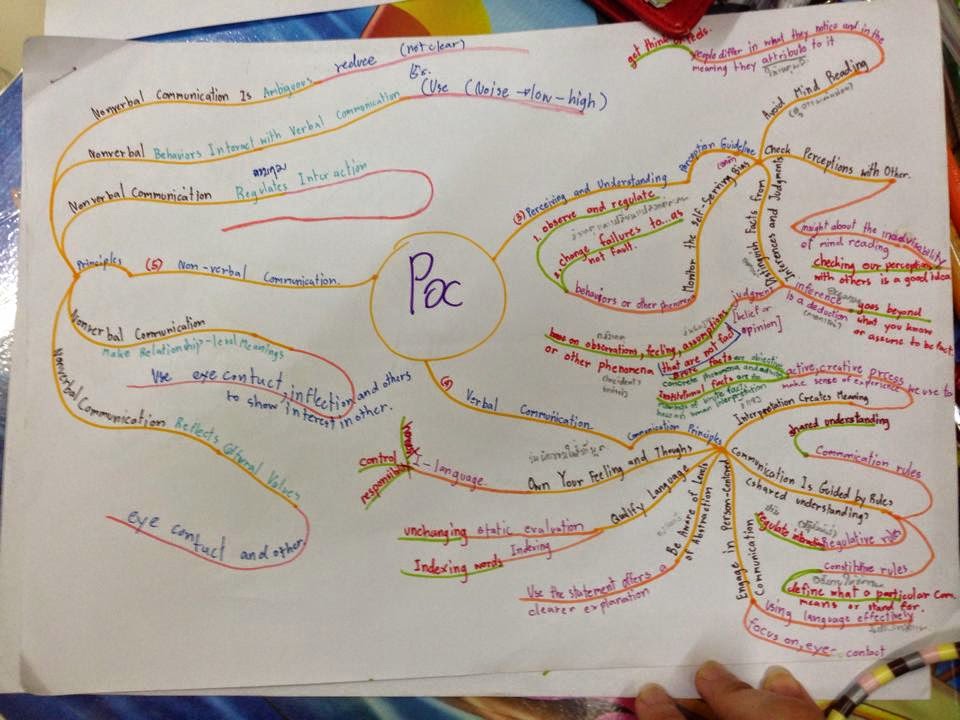 PoC
(5) Non-verbal Communication.
Principles
Nonverbal Communication Is Ambiguous
reduce (not clear)
Nonverbal Behaviors Interact with Verbal Communication
(Use (Noise → low-high)
Nonverbal Communication Regulates Interaction
Nonverbal Communication
Make Relationship-level Meanings
Use eye contact, inflection and others
to show interest in other.
Nonverbal Communication Reflects Cultural Values
eye contact and other
(3) Perceiving and Understanding
Perception Guideline
Avoid Mind Reading
People differ in what they notice and in the
meaning they attribute to it
Check Perceptions with Other.
insight about the inadvisability
of mind reading
checking our perceptions
with others is a good idea
Distinguish Facts from
Inferences and Judgments
inference goes beyond
is a deduction what you know
or assume to be fact.
judgment
[belief or
opinion]
base on observations, feeling, assumptions
or other phenomena that are not fact
Brute facts are objective
concrete phenomena and
institutional facts are
meanings of brute facts
based on human interpretation
Monitor the self-Serving Bias
1. observe and regulate
2. change failures to...as
not fault.
behaviors or other phenomena
(4) Verbal Communication.
Communication Principles
Interpretation Creates Meaning
active, creative process we use to
make sense of experience
Communication Is Guided by Rules
(shared understanding)
shared understanding
Communication rules
Regulative rules
regulate interaction
constitutive rules.
define what a particular com.
means or stand for.
Engage in Person-centered
Communication
using language effectively
focus on, eye- contact
Be Aware of Levels
of Abstraction
Use the statement offers a
clearer explanation
Qualify Language
unchanging static evaluation
Indexing words Indexing
Own Your Feeling and Thoughts
I-language
control
responsible